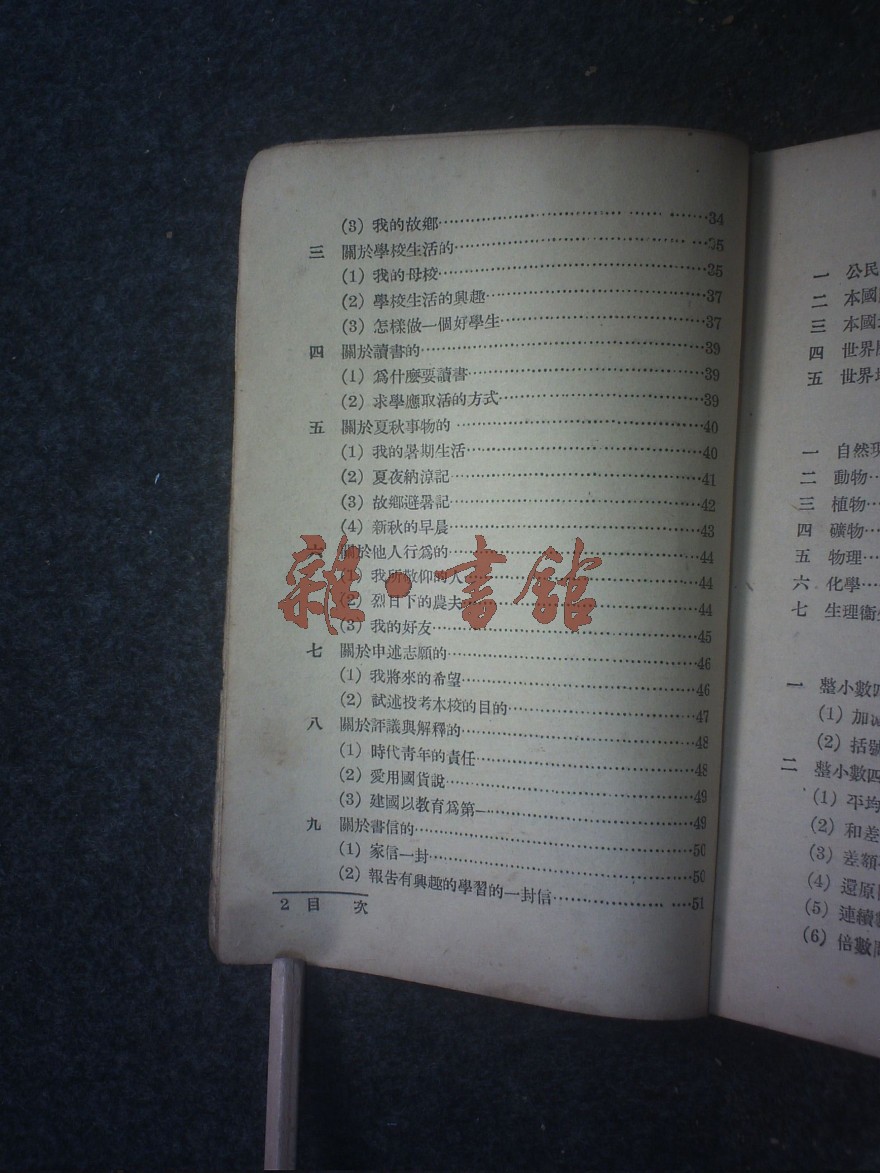 (3) 我的故鄉……34
三 關於學校生活的……35
(1) 我的母校……35
(2) 學校生活的興趣……37
(3) 怎樣做一個好學生……37
四 關於讀書的……39
(1) 爲什麼要讀書……39
(2) 求學應取活的方式……39
五 關於夏秋事物的……40
(1) 我的暑期生活……40
(2) 夏夜納涼記……41
(3) 故鄉避暑記……42
(4) 新秋的早晨……43
六 關於他人行爲的……44
(1) 我所敬仰的人……44
(2) 烈日下的農夫……44
(3) 我的好友……45
七 關於申述志願的……46
(1) 我將來的希望……46
(2) 試述投考本校的目的……47
八 關於評議與解釋的……48
(1) 時代靑年的責任……48
(2) 愛用國貨說……49
(3) 建國以敎育爲第一……49
九 關於書信的……50
(1) 家信一封……50
(2) 報吿有興趣的學習的一封信……51
2 目 次
雜·書館
一 公民
二 本國
三 本國
四 世界
五 世界
一 自然現
二 動物…
三 植物…
四 礦物…
五 物理…
六 化學…
七 生理衞
一 整小數四
(1) 加減
(2) 括號
二 整小數四
(1) 平均
(2) 和差
(3) 差額
(4) 還原
(5) 連續
(6) 倍數